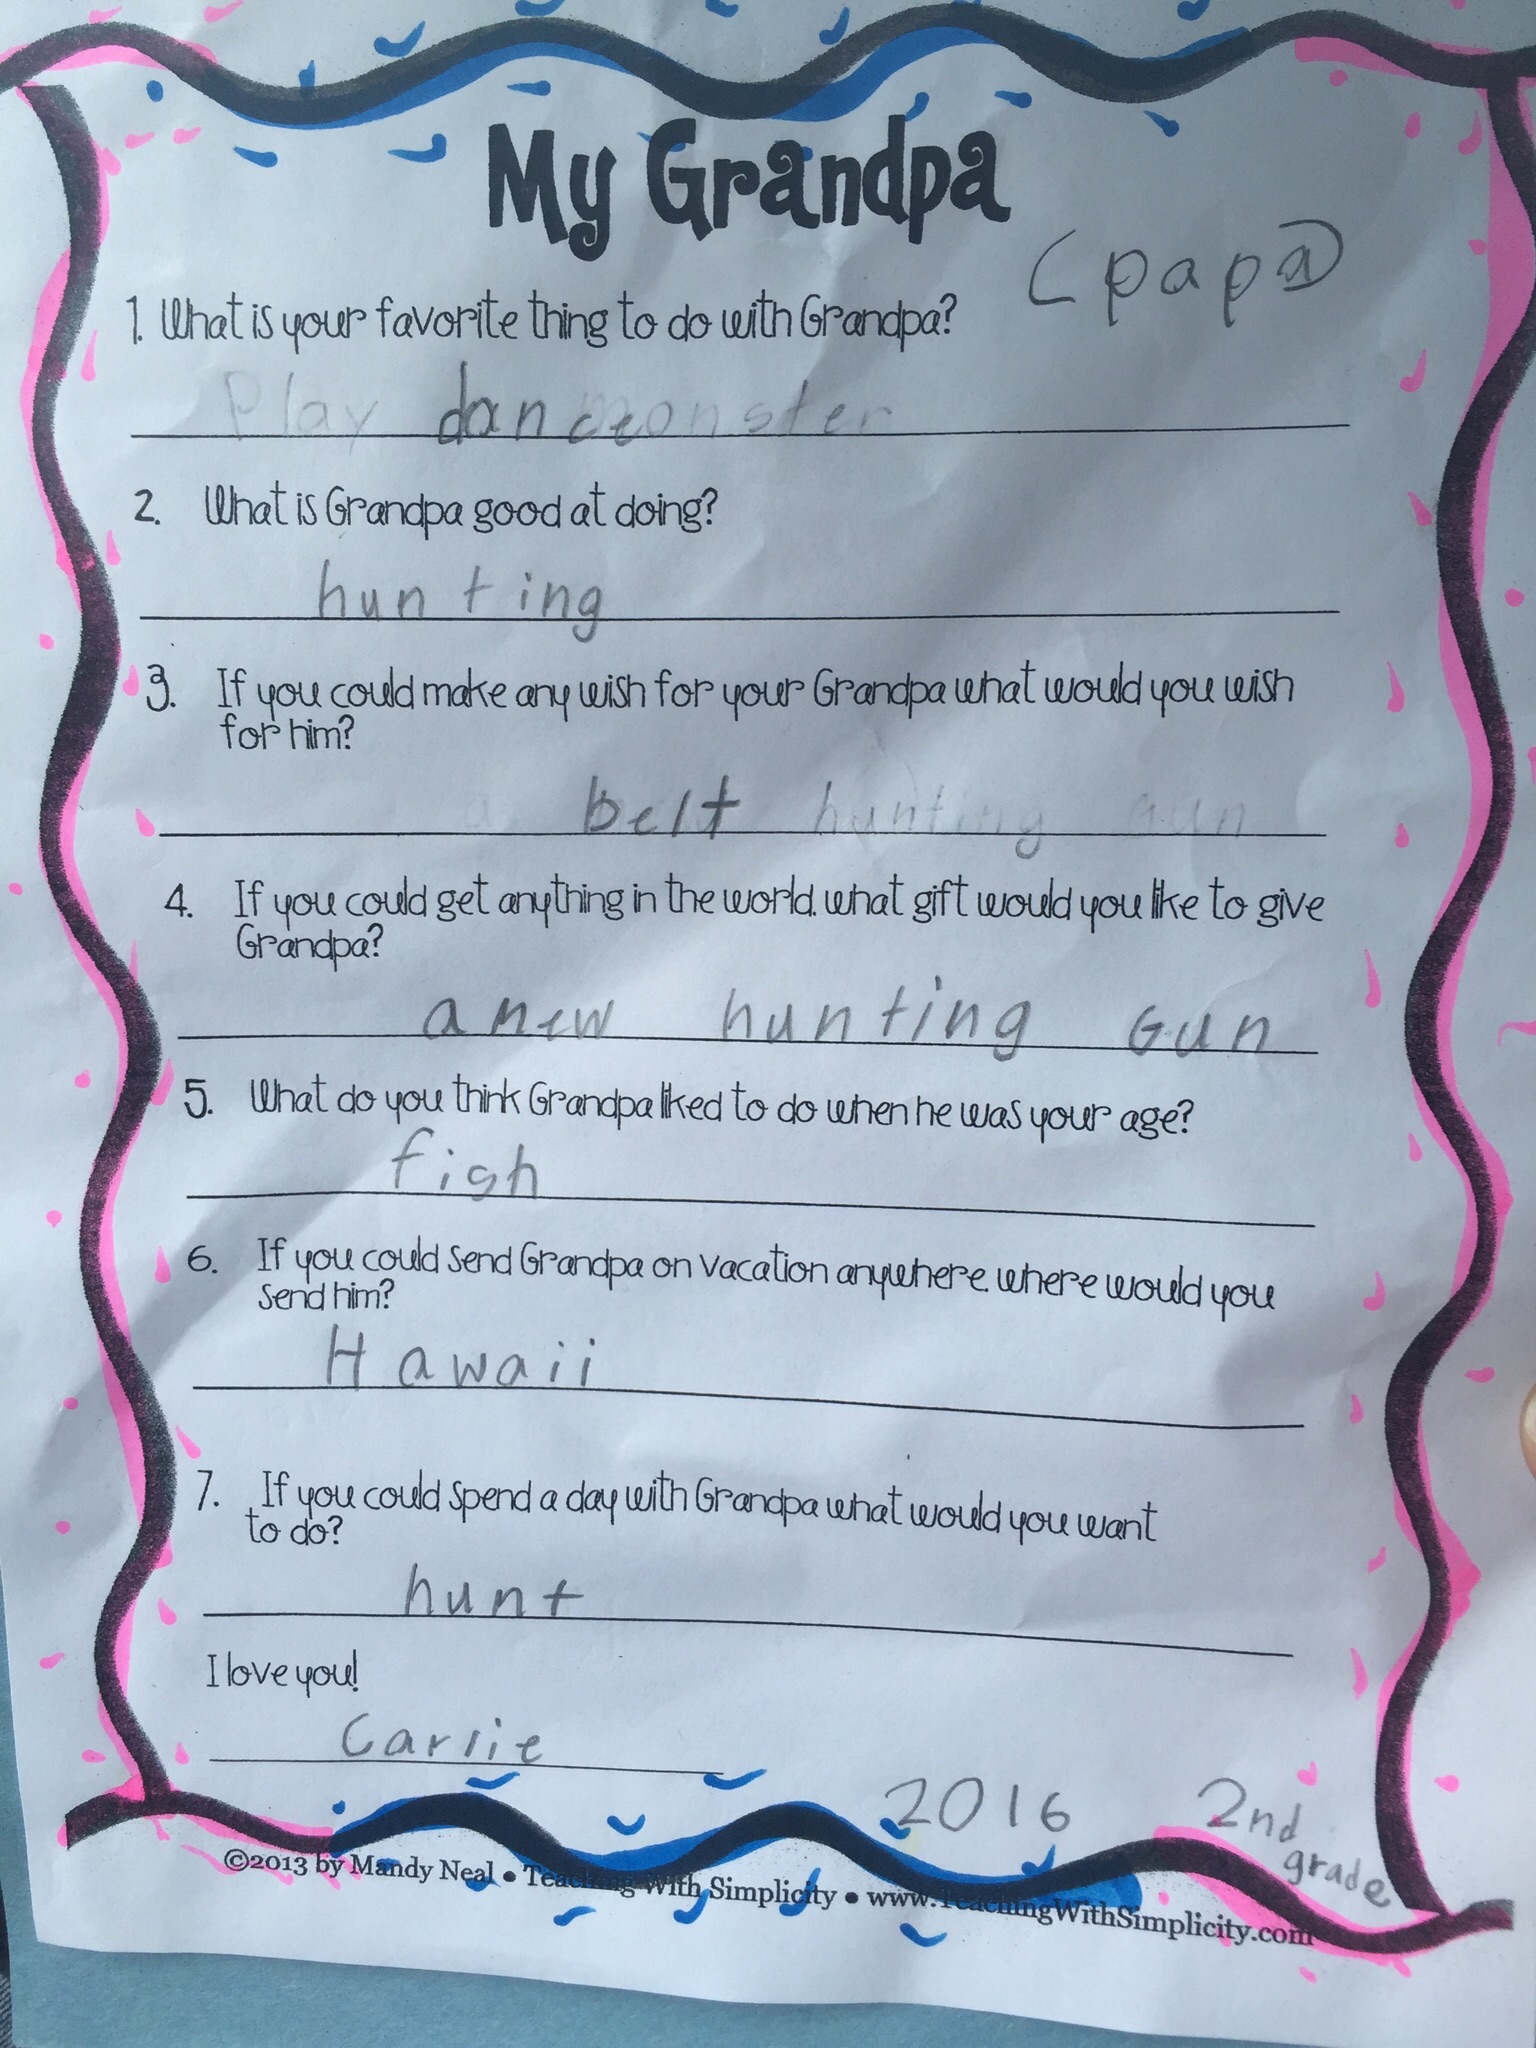 My Grandpa
(papa)
1. What is your favorite thing to do with Grandpa?
Play dance monster
2. What is Grandpa good at doing?
hunting
3. If you could make any wish for your Grandpa what would you wish
for him?
a belt hunting gun
4. If you could get anything in the world, what gift would you like to give
Grandpa?
a new hunting Gun
5. What do you think Grandpa liked to do when he was your age?
fish
6. If you could send Grandpa on vacation anywhere, where would you
send him?
Hawaii
7. If you could spend a day with Grandpa what would you want
to do?
hunt
I love you!
Carlie
2016 2nd
grade
©2013 by Mandy Neal • Teaching With Simplicity • www.TeachingWithSimplicity.com